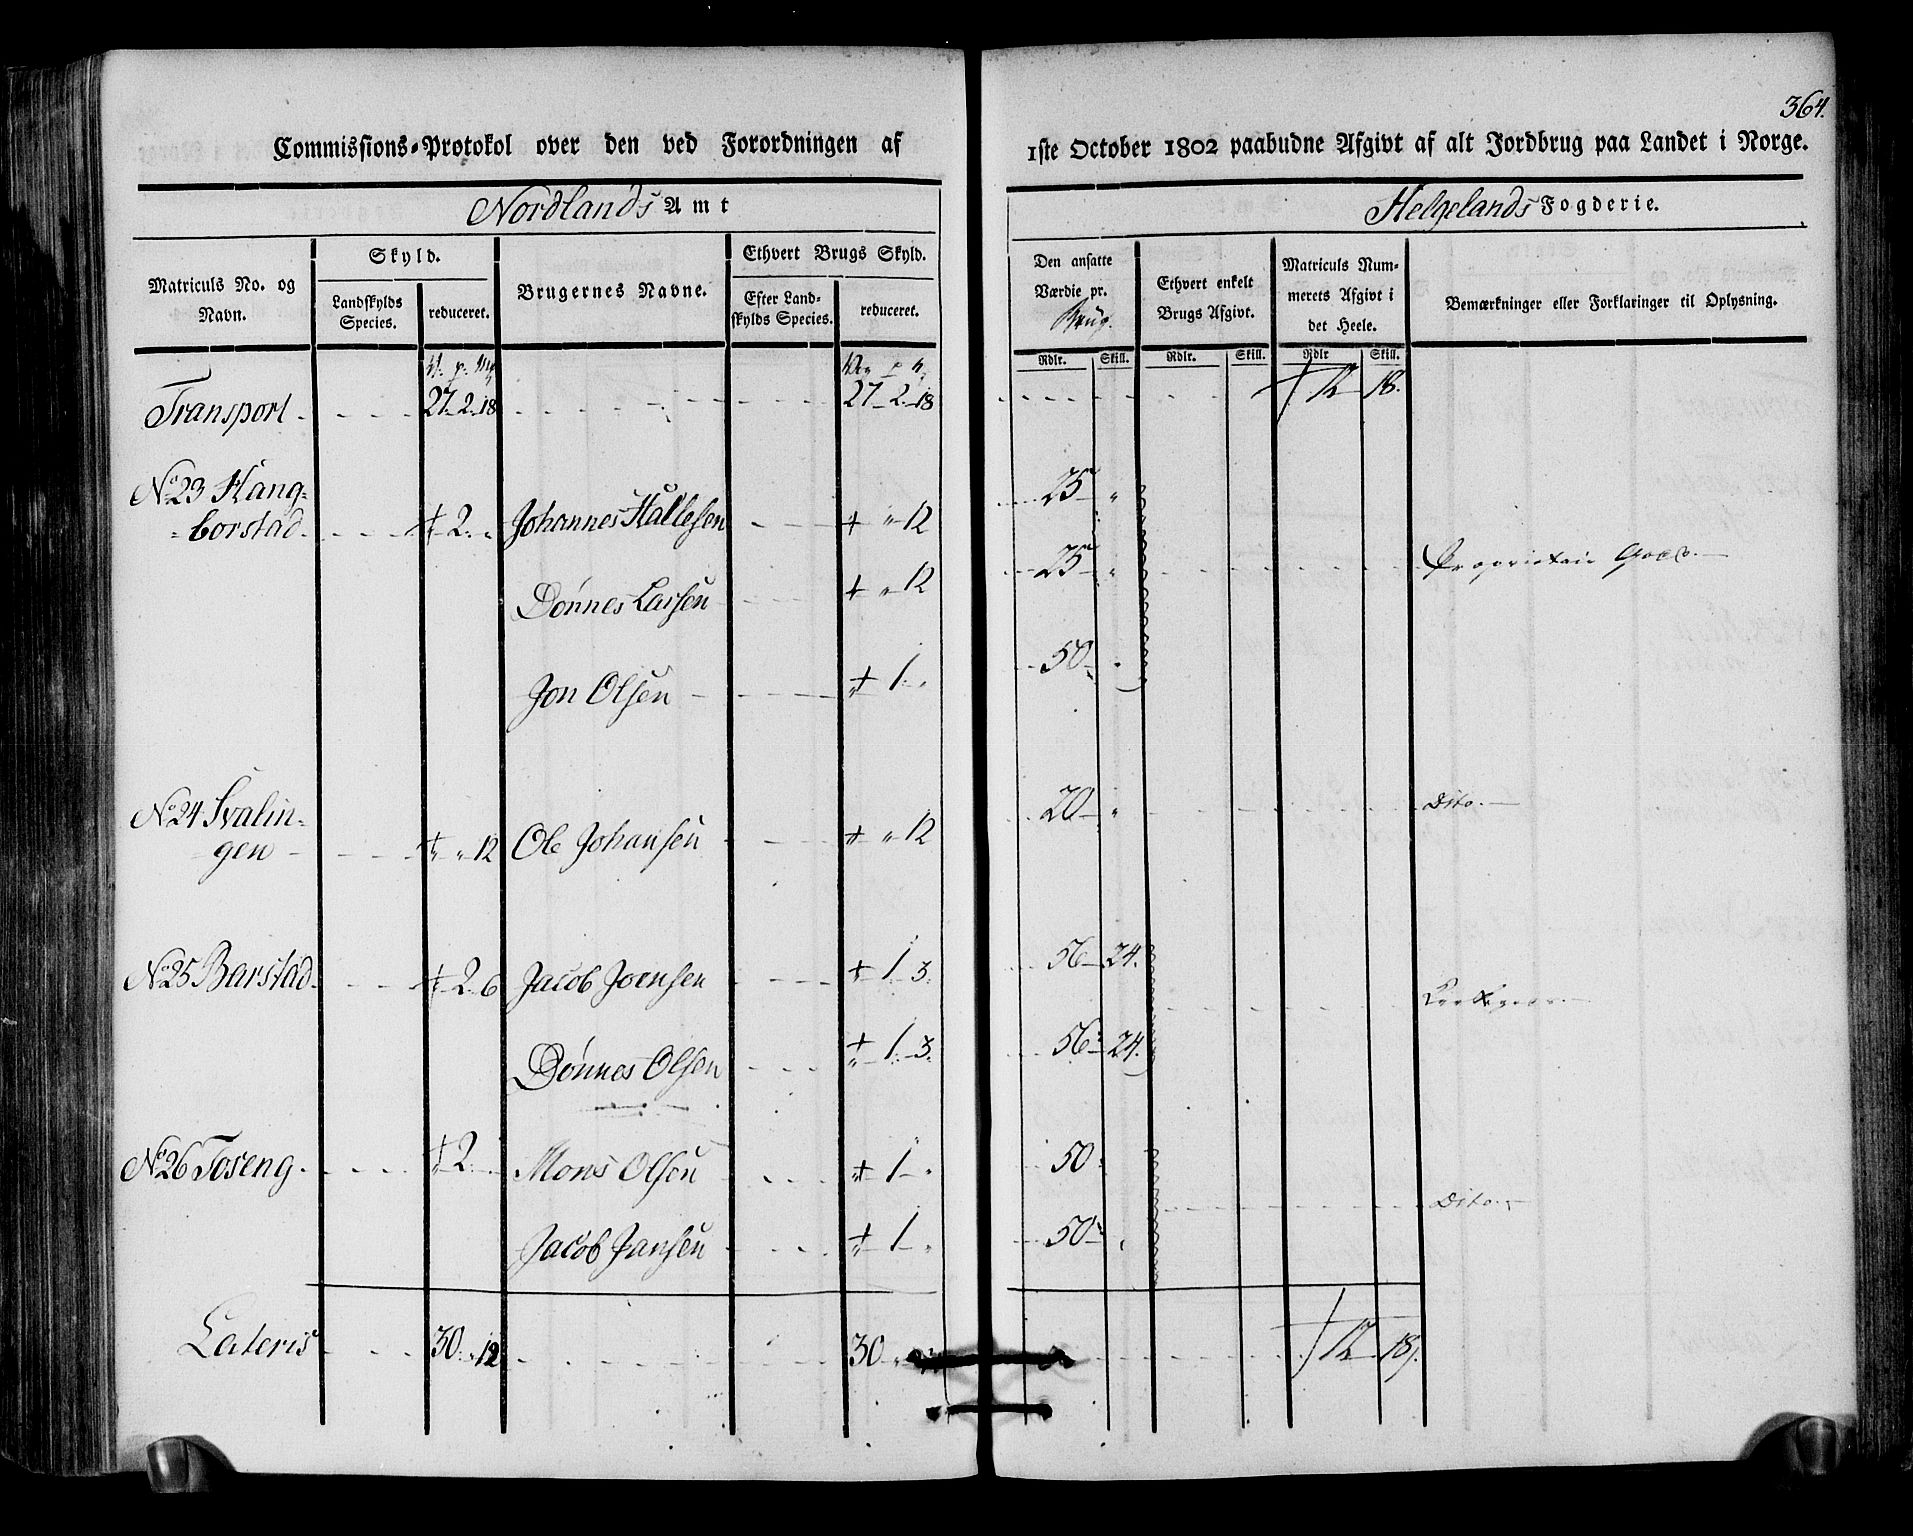 364.
Commissions-Protokol over den ved Forordningen af 1ste October 1802 paabudne Afgivt af alt Jordbrug paa Landet i Norge.
Nordlands Amt Helgelands Fogderie.
Matriculs No. og Navn.
Skyld.
Landskylds Species.
reduceret.
Brugernes Navne.
Ethvert Brugs Skyld.
Efter Landskylds Species.
reduceret.
Den ansatte Værdie pr. Brug.
Rdlr. Skill.
Ethvert enkelt Brugs Afgivt.
Rdlr. Skill.
Matriculs Nummerets Afgivt i det Heele.
Rdlr Skill.
Bemærkninger eller Forklaringer til Oplysning.
Transport 27 2 18 27 2 18 12 18.
No 23 Hang=
=borstad 2 " Johannes Hallesen " 12 25 "
Dønnes Larsen " 12 25 " Proprietair Gods
Jon Olsen 1 " 50 "
No 24 Svalin=
gen " 12 Ole Johansen " 12 20 " Dito
No 25 Barstad 2 6 Jacob Joensen 1 3 56 24.
Dønnes Olsen 1 3 56 24.
No 26 Toseng 2 Mons Olsen 1 " 50
Dito
Jacob Jansen 1 " 50 "
Lateris 30 " 12 30 " 12 18